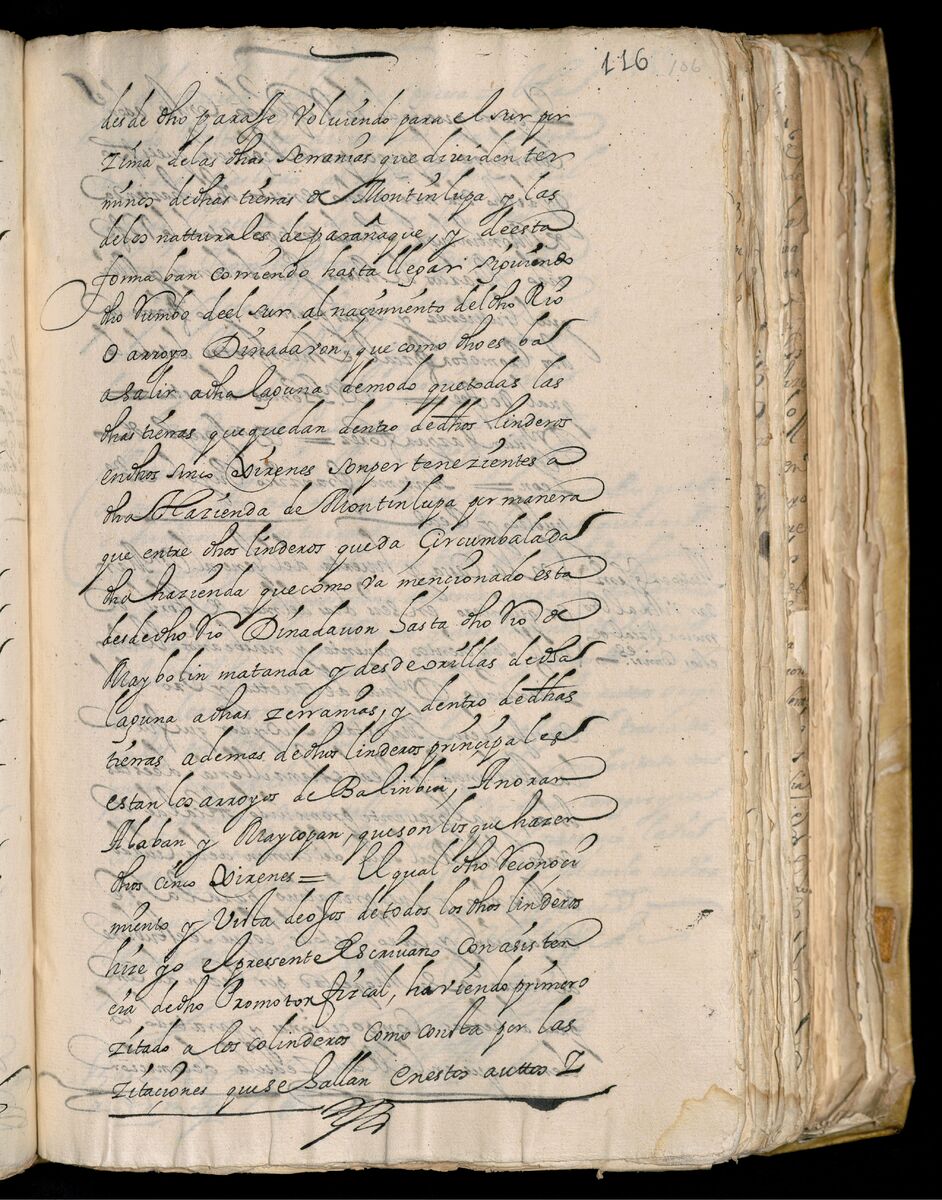 116 106
desde dho paraJe volviendo para el sur por
zima delas dhas serranias que dividen ter
minos dedhas tierras de Montinlupa y las
delos natturales de parañaque, y deesta
forma ban corriendo hasta llegar siguiendo
dho Rumbo deel sur al naçimiento deldho Rio
O arroyo Dinadavon, que como dhoes ba
a salir adha laguna demodo quetodas las
dhas tierras quequedan dentro dedhos linderos
endhos sinco Virenes sonpertenezientes a
dha Hazienda de Montinlupa por manera
que entre dhos linderos queda Circumbalada
dha hazienda que como va mencionado esta
desdedho Rio Dinadavon hasta dho Rio de
Maybolin matanda y desde orillas dedha
laguna adhas zerranias, y dentro dedhas
tierras ademas dedhos linderos principales
estan los arroyos de Balinbin, Anoran
Alaban y Maycopan, queson los que hazen
dhos cinco Virenes = El qual dho Reconoci
miento y Vista deoJos detodos los dhos linderos
hize yo elpressente Escrivano con asisten
cia dedho Promotor fizcal, haviendo primero
zitado a los colinderos como consta por las
zitaçiones quese hallan enestos auttos